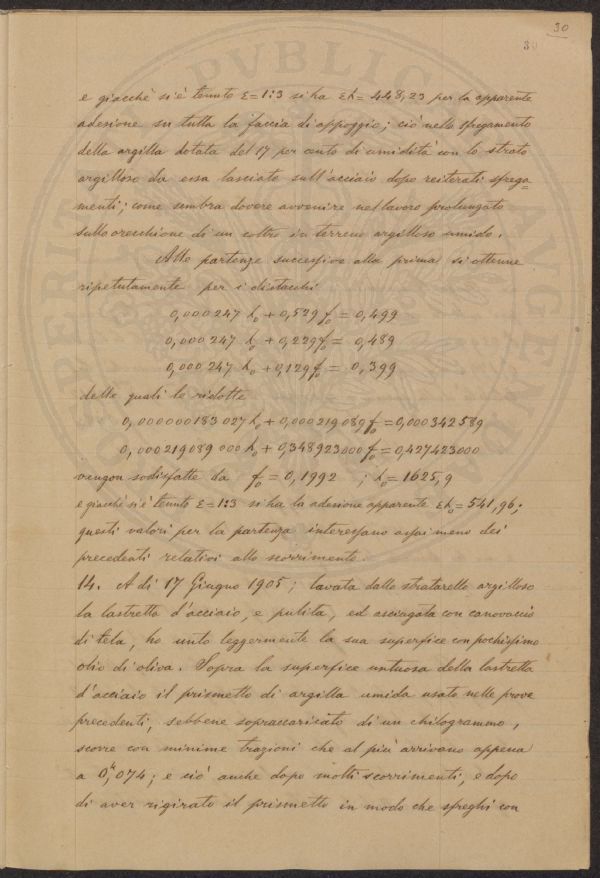 30
30
e giacchè si è tenuto ε=1:3 si ha εh = 448,23 per la apparente
adesione su tutta la faccia di appoggio; ciò nello sfregamento
della argilla dotata del 17 per cento di umidità con lo strato
argilloso da essa lasciato sull'acciaio dopo reiterati sfrega=
menti; come sembra dovere avvenire nel lavoro prolungato
sullo orecchione di un coltro in terreno argilloso umido.
Alle partenze successive alla prima si ottenne
ripetutamente per i distacchi
0,000247 h₀ + 0,529 f₀ = 0,499
0,000247 h₀ + 0,229 f₀ = 0,489
0,000247 h₀ + 0,129 f₀ = 0,399
delle quali le ridotte
0,000000183027 h₀ + 0,000219089 f₀ = 0,000342589
0,000219089000 h₀ + 0,348923000 f₀ = 0,427423000
vengon sodisfatte da f₀ = 0,1992 ; h₀ = 1625,9
e giacchè si è tenuto ε=1:3 si ha la adesione apparente εh₀ = 541,96;
questi valori per la partenza interessano assai meno dei
precedenti relativi allo scorrimento.
14. A dì 17 Giugno 1905; lavata dallo straterello argilloso
la lastretta d'acciaio, e pulita, ed asciugata con canovaccio
di tela, ho unto leggermente la sua superfice con pochissimo
olio di oliva. Sopra la superfice untuosa della lastretta
d'acciaio il prismetto di argilla umida usato nelle prove
precedenti, sebbene sopraccaricato di un chilogrammo,
scorre con minime trazioni che al più arrivano appena
a 0,ᵏ074; e ciò anche dopo molti scorrimenti, e dopo
di aver rigirato il prismetto in modo che sfreghi con